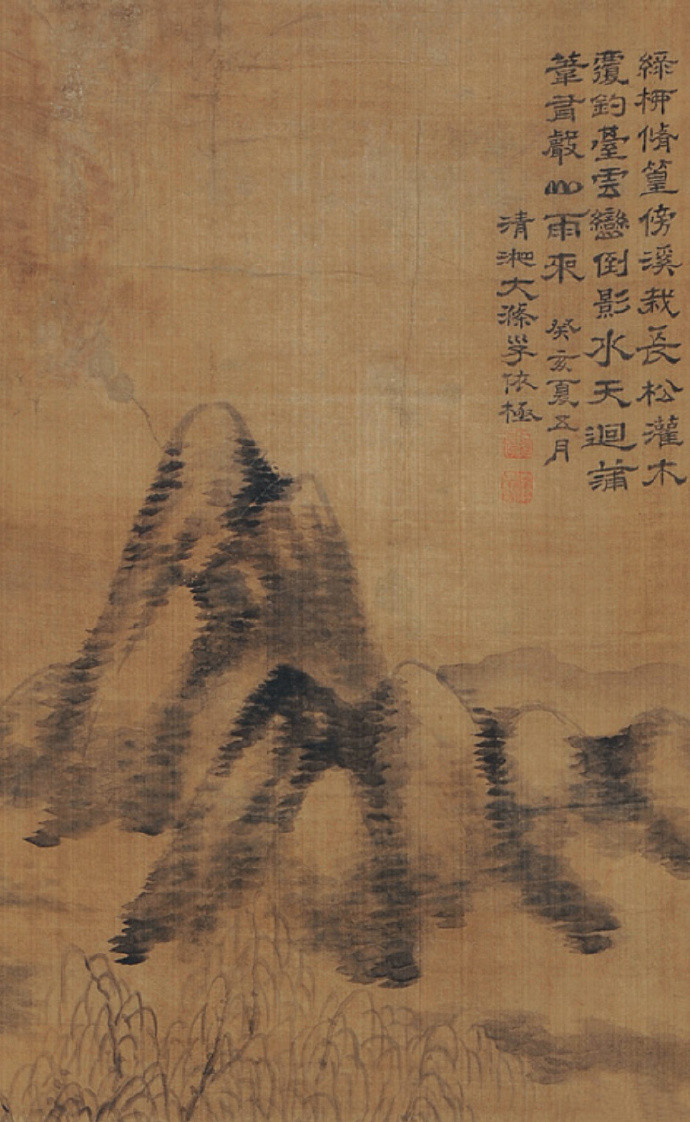 綠桺脩篁傍溪栽長松灌木
覆釣臺雲巒倒影水天迴蒲
葦肅嚴山雨來 癸亥夏五月
清湘大滌依極